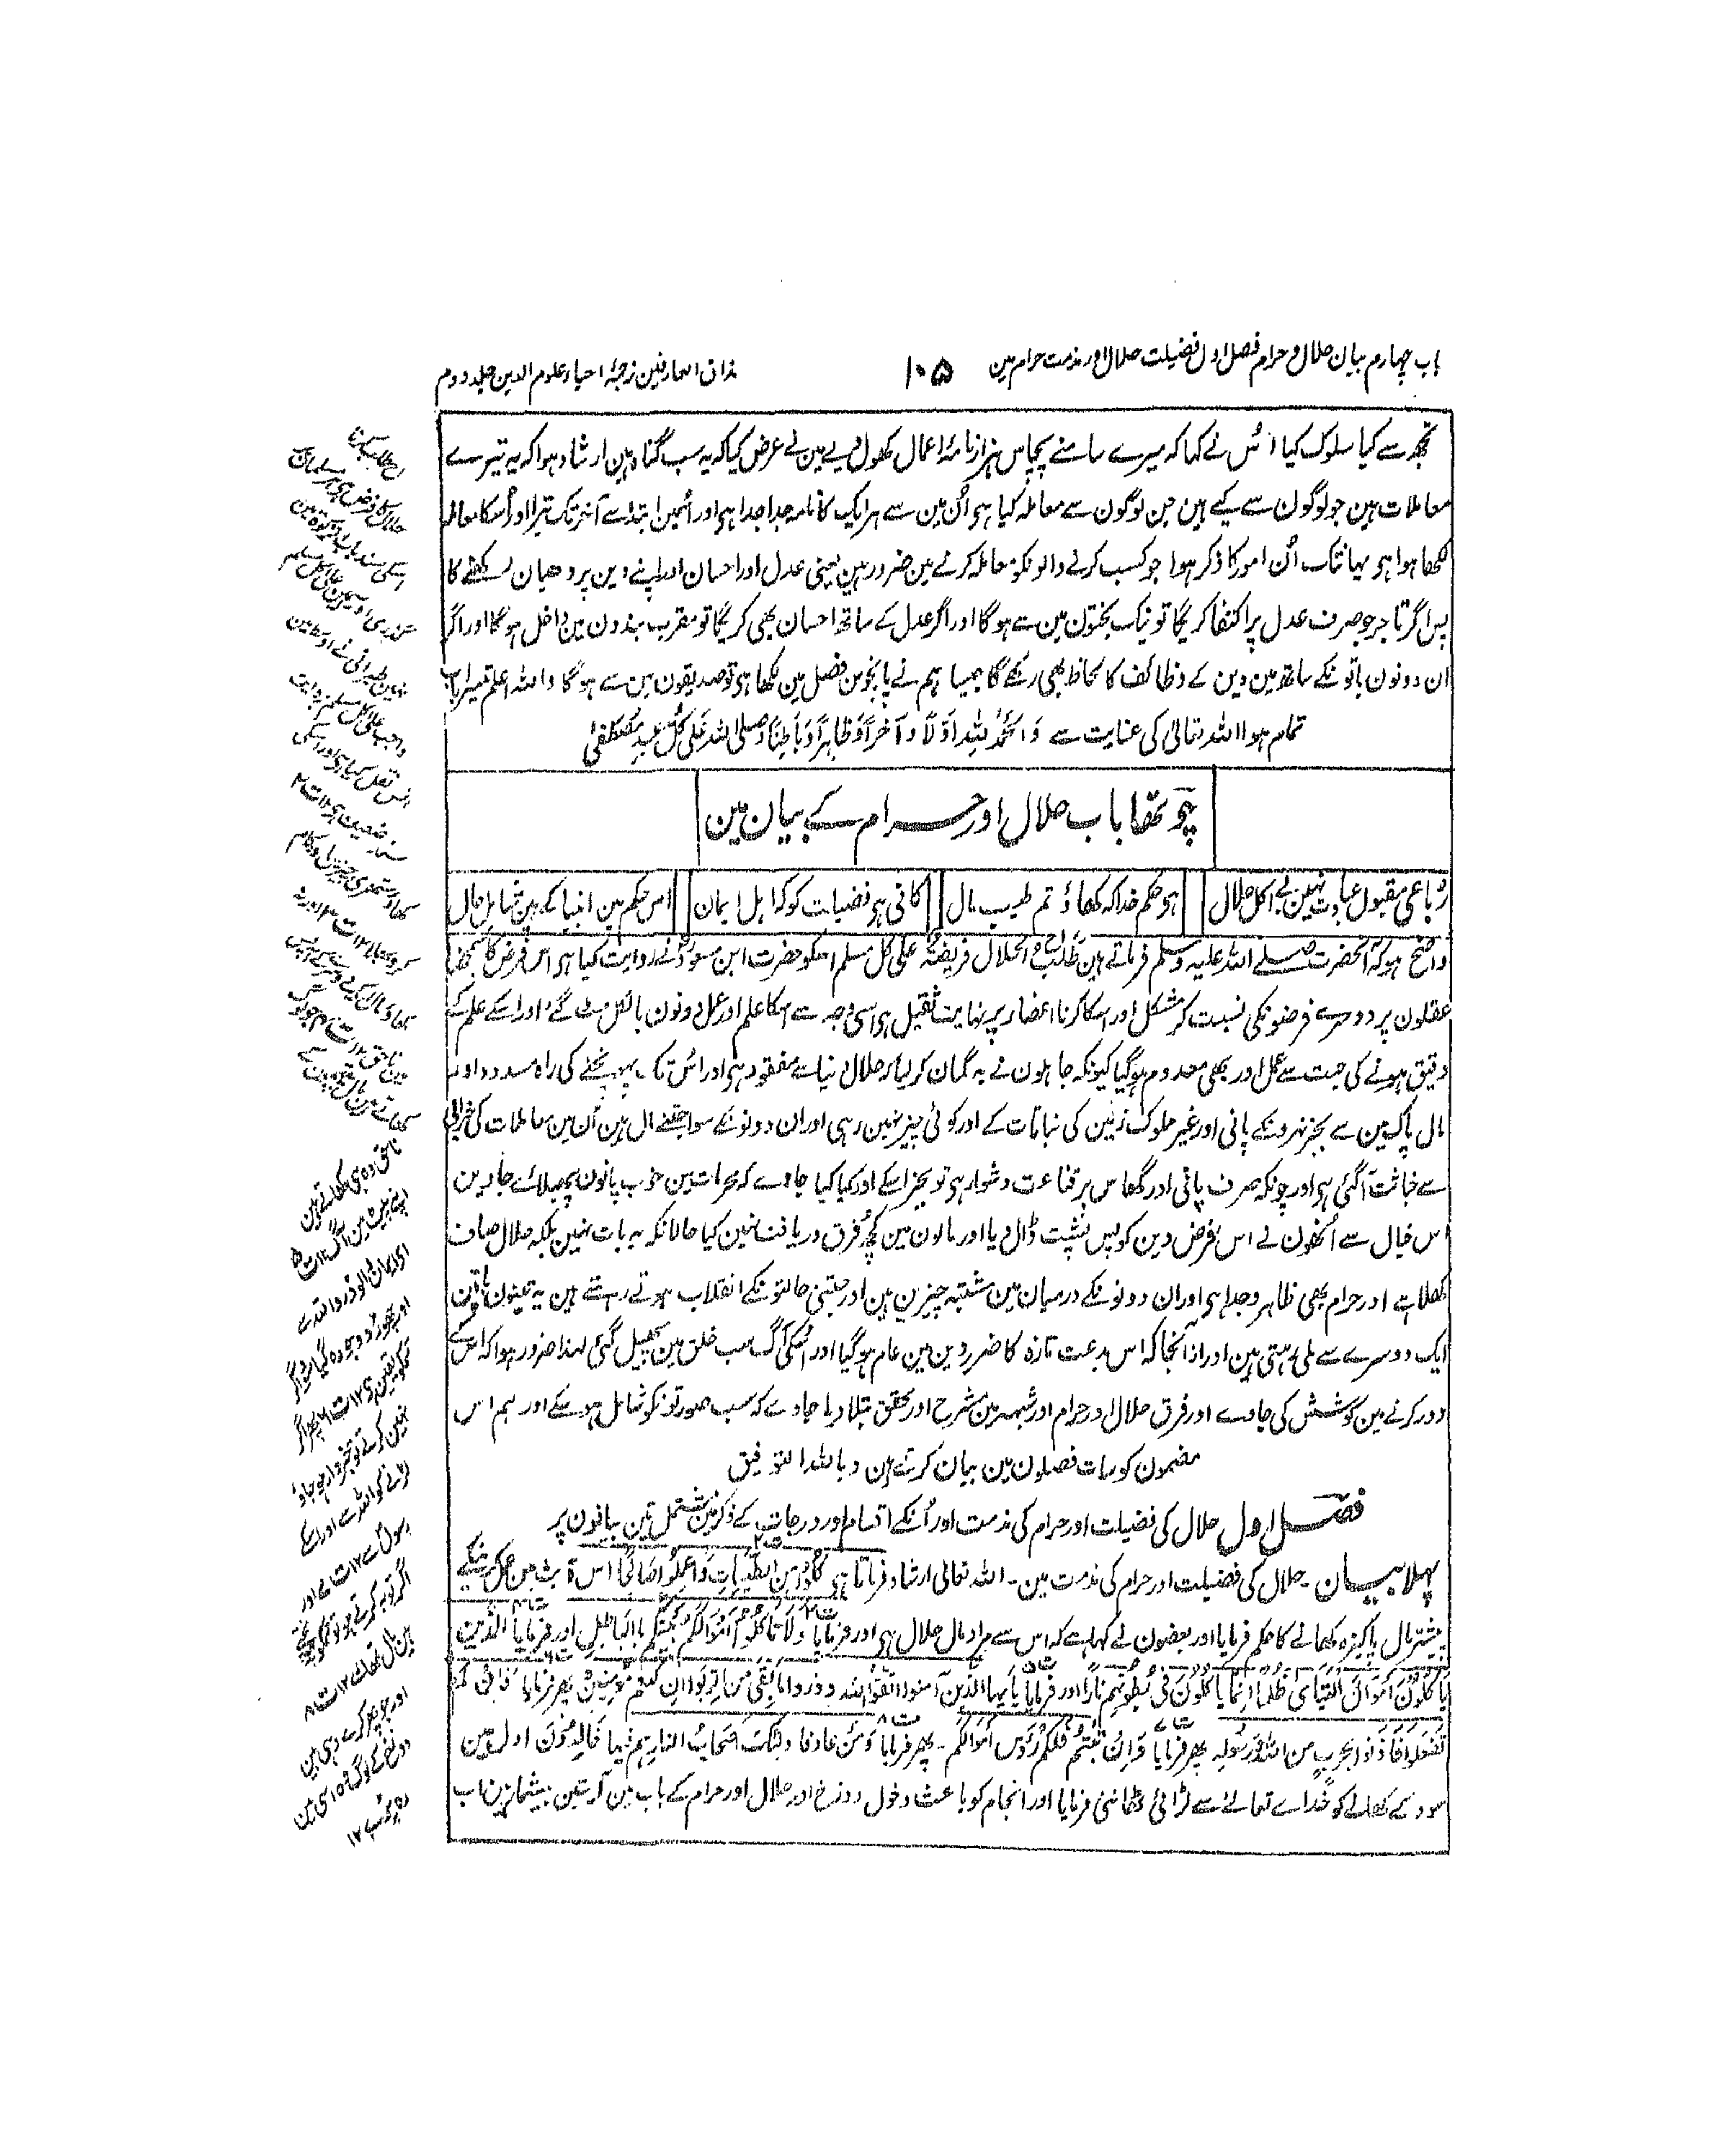 باب چہارم بیان حلال و حرام فصل اول فضیلت حلال اور مذمت حرام مین
۱۰۵
مذاق العارفین ترجمۂ احیاء علوم الدین جلد دوم
تجھ سے کیا سلوک کیا اُس نے کہا کہ میرے سامنے پچاس ہزار نامۂ اعمال کھول دیے مین نے عرض کیا کہ یہ سب گناہ ہین ارشاد ہوا کہ یہ تیرے
معاملات ہین جو لوگون سے کیے ہین جن لوگون سے معاملہ کیا ہی اُن مین سے ہر ایک کا نامہ جدا جدا ہی اور اُسمین ابتدا سے آخر تک تیرا اور اُسکا معاملہ
لکھا ہوا ہی یہانتک اُن امور کا ذکر ہوا جو کسب کرنے والونکو معاملہ کرنے مین ضرور ہین یعنی عدل اور احسان اور اپنے دین پر دھیان رکھنے کا
پس اگر تاجر جو صرف عدل پر اکتفا کریگا تو نیک بختون مین سے ہوگا اور اگر عدل کے ساتھ احسان بھی کریگا تو مقرب بندون مین داخل ہوگا اور اگر
ان دونون باتونکے ساتھ مین دین کے وظائف کا لحاظ بھی رکھے گا جیسا ہم نے پانچوین فصل مین لکھا ہی تو صدیقون مین سے ہوگا واللہ اعلم تیسرا باب
تمام ہوا اللہ تعالیٰ کی عنایت سے وَالحَمدُ لِلّٰہِ اَوَّلًا وَآخِرًا وَظَاہِرًا وَبَاطِنًا وَصلی اللہ عَلیٰ کُلِّ عبدٍ مُصطَفیٰ
چوتھا باب حلال اور حرام کے بیان مین
رُباعی مقبول عبادت نہین بے اکل حلال
ہو حکم خدا کہ کھاؤ تم طیب مال
کافی ہی فضیلت کو کہ اہل ایمان
اس حکم مین انبیا کے ہین شامل حال
واضح ہو کہ آنحضرت صلے اللہ علیہ وسلم فرماتے ہین طَلَبُ الحلال فریضۃٌ علی کل مسلم اسکو حضرت ابن مسعودؓ نے روایت کیا ہی اس فرض کا سمجھنا
عقلون پر دوسرے فرضونکی نسبت کر مشکل اور اسکا کرنا اعضا پر نہایت ثقیل ہی اسی وجہ سے اسکا علم اور عمل دونون بالکل مٹ گئے اور اسکے علم کے
دقیق ہونے کی جہت سے عمل اور بھی معدوم ہوگیا کیونکہ جاہلون نے یہ گمان کر لیا کہ حلال دنیا سے مفقود ہی اور اُس تک پہونچنے کی راہ مسدود اور
مال پاک مین سے بجز نہرونکے پانی اور غیر مملوک زمین کی نباتات کے اور کوئی چیز نہین رہی اور ان دونونکے سوا جتنے مال ہین اُن مین معاملات کی خرابی
سے خباثت آگئی ہی اور چونکہ صرف پانی اور گھاس پر قناعت دشوار ہی تو بجز اسکے اور کیا کیا جاوے کہ محرمات مین خوب پانون پھیلائے جاوین
اس خیال سے اُنھون نے اس فرض دین کو پس پشت ڈال دیا اور مالون مین کچھ فرق دریافت نہین کیا حالانکہ یہ بات نہین بلکہ حلال صاف
کھلا ہی اور حرام بھی ظاہر وجدا ہی اور ان دونونکے درمیان مین مشتبہ چیزین ہین اور جتنی حالتونکے انقلاب ہوتے رہتے ہین یہ تینون باتین
ایک دوسرے سے ملی رہتی ہین اور ازانجا کہ اس بدعت تازہ کا ضرر دین مین عام ہوگیا اور اُسکی آگ سب خلق مین پھیل گئی لہذا ضرور ہوا کہ اس
دور کرنے مین کوشش کی جاوے اور فرق حلال اور حرام اور شبہہ مین مشرح اور محقق بتلا دیا جاوے کہ سب صورتونکو شامل ہوسکے اور ہم اس
مضمون کو سات فصلون مین بیان کرتے ہین وباللہ التوفیق
فصل اول حلال کی فضیلت اور حرام کی مذمت اور اُنکے اقسام اور درجات کے ذکر مین مشتمل تین بیانون پر
پہلا بیان - حلال کی فضیلت اور حرام کی مذمت مین - اللہ تعالیٰ ارشاد فرماتا ہی کُلُوْا مِنَ الطَّیِّبَاتِ وَاعْمَلُوْا صَالِحًا اس آیت مین عمل کرنیکے
پیشتر مال پاکیزہ کھانے کا حکم فرمایا اور بعضون نے کہا ہے کہ اس سے مراد مال حلال ہی اور فرمایا وَلَا تَاْکُلُوْا اَمْوَالَکُمْ بَیْنَکُمْ بِالْبَاطِلِ اور فرمایا اَلَّذِیْنَ
یَاْکُلُوْنَ اَمْوَالَ الْیَتَامیٰ ظُلْمًا اِنَّمَا یَاْکُلُوْنَ فِیْ بُطُوْنِہِمْ نَارًا اور فرمایا یَا اَیُّہَا الَّذِیْنَ آمنوا اتَّقُوا اللہ وذروا مَا بَقِیَ مِنَ الرِّبوا اِنْ کُنْتُمْ مُؤْمِنِیْنَ پھر فرمایا فَاِنْ لَمْ
تَفْعَلُوْا فَاْذَنُوْا بِحَرْبٍ مِنَ اللہِ وَرَسُوْلِہٖ پھر فرمایا وَاِنْ تُبْتُمْ فَلَکُمْ رُؤُسُ اَمْوَالِکُمْ - پھر فرمایا وَمَنْ عَادَ فَاُولٰئِکَ اَصْحَابُ النار ہم فیہا خَالِدُوْنَ اول مین
سود کے کھانے کو خداے تعالےٰ سے لڑائی ٹھانی فرمایا اور انجام کو باعث دخول دوزخ اور حلال اور حرام کے باب مین آیتین بیشمار ہین اب
ناحق وہ ہی کھاتے ہین
اپنے پیٹ مین آگ ۱۲ ت ۵
ای ایمان والو ڈرو اللہ سے
اور چھوڑ دو جو رہ گیا سود اگر
تمکو یقین ہی ۱۲ ت ۶ پھر اگر
نہین کرتے تو خبردار ہو جاؤ
لڑنے کو اللہ سے اور اسکے
رسول سے ۱۲ ت ۷ اور
اگر توبہ کرتے ہو تو تمکو پہنچتے
ہین مال تمھارے ۱۲ ت ۸
اور جو پھر کرے وہی ہین
دوزخ کے لوگ وہ اسی مین
رہ پڑے ۱۲